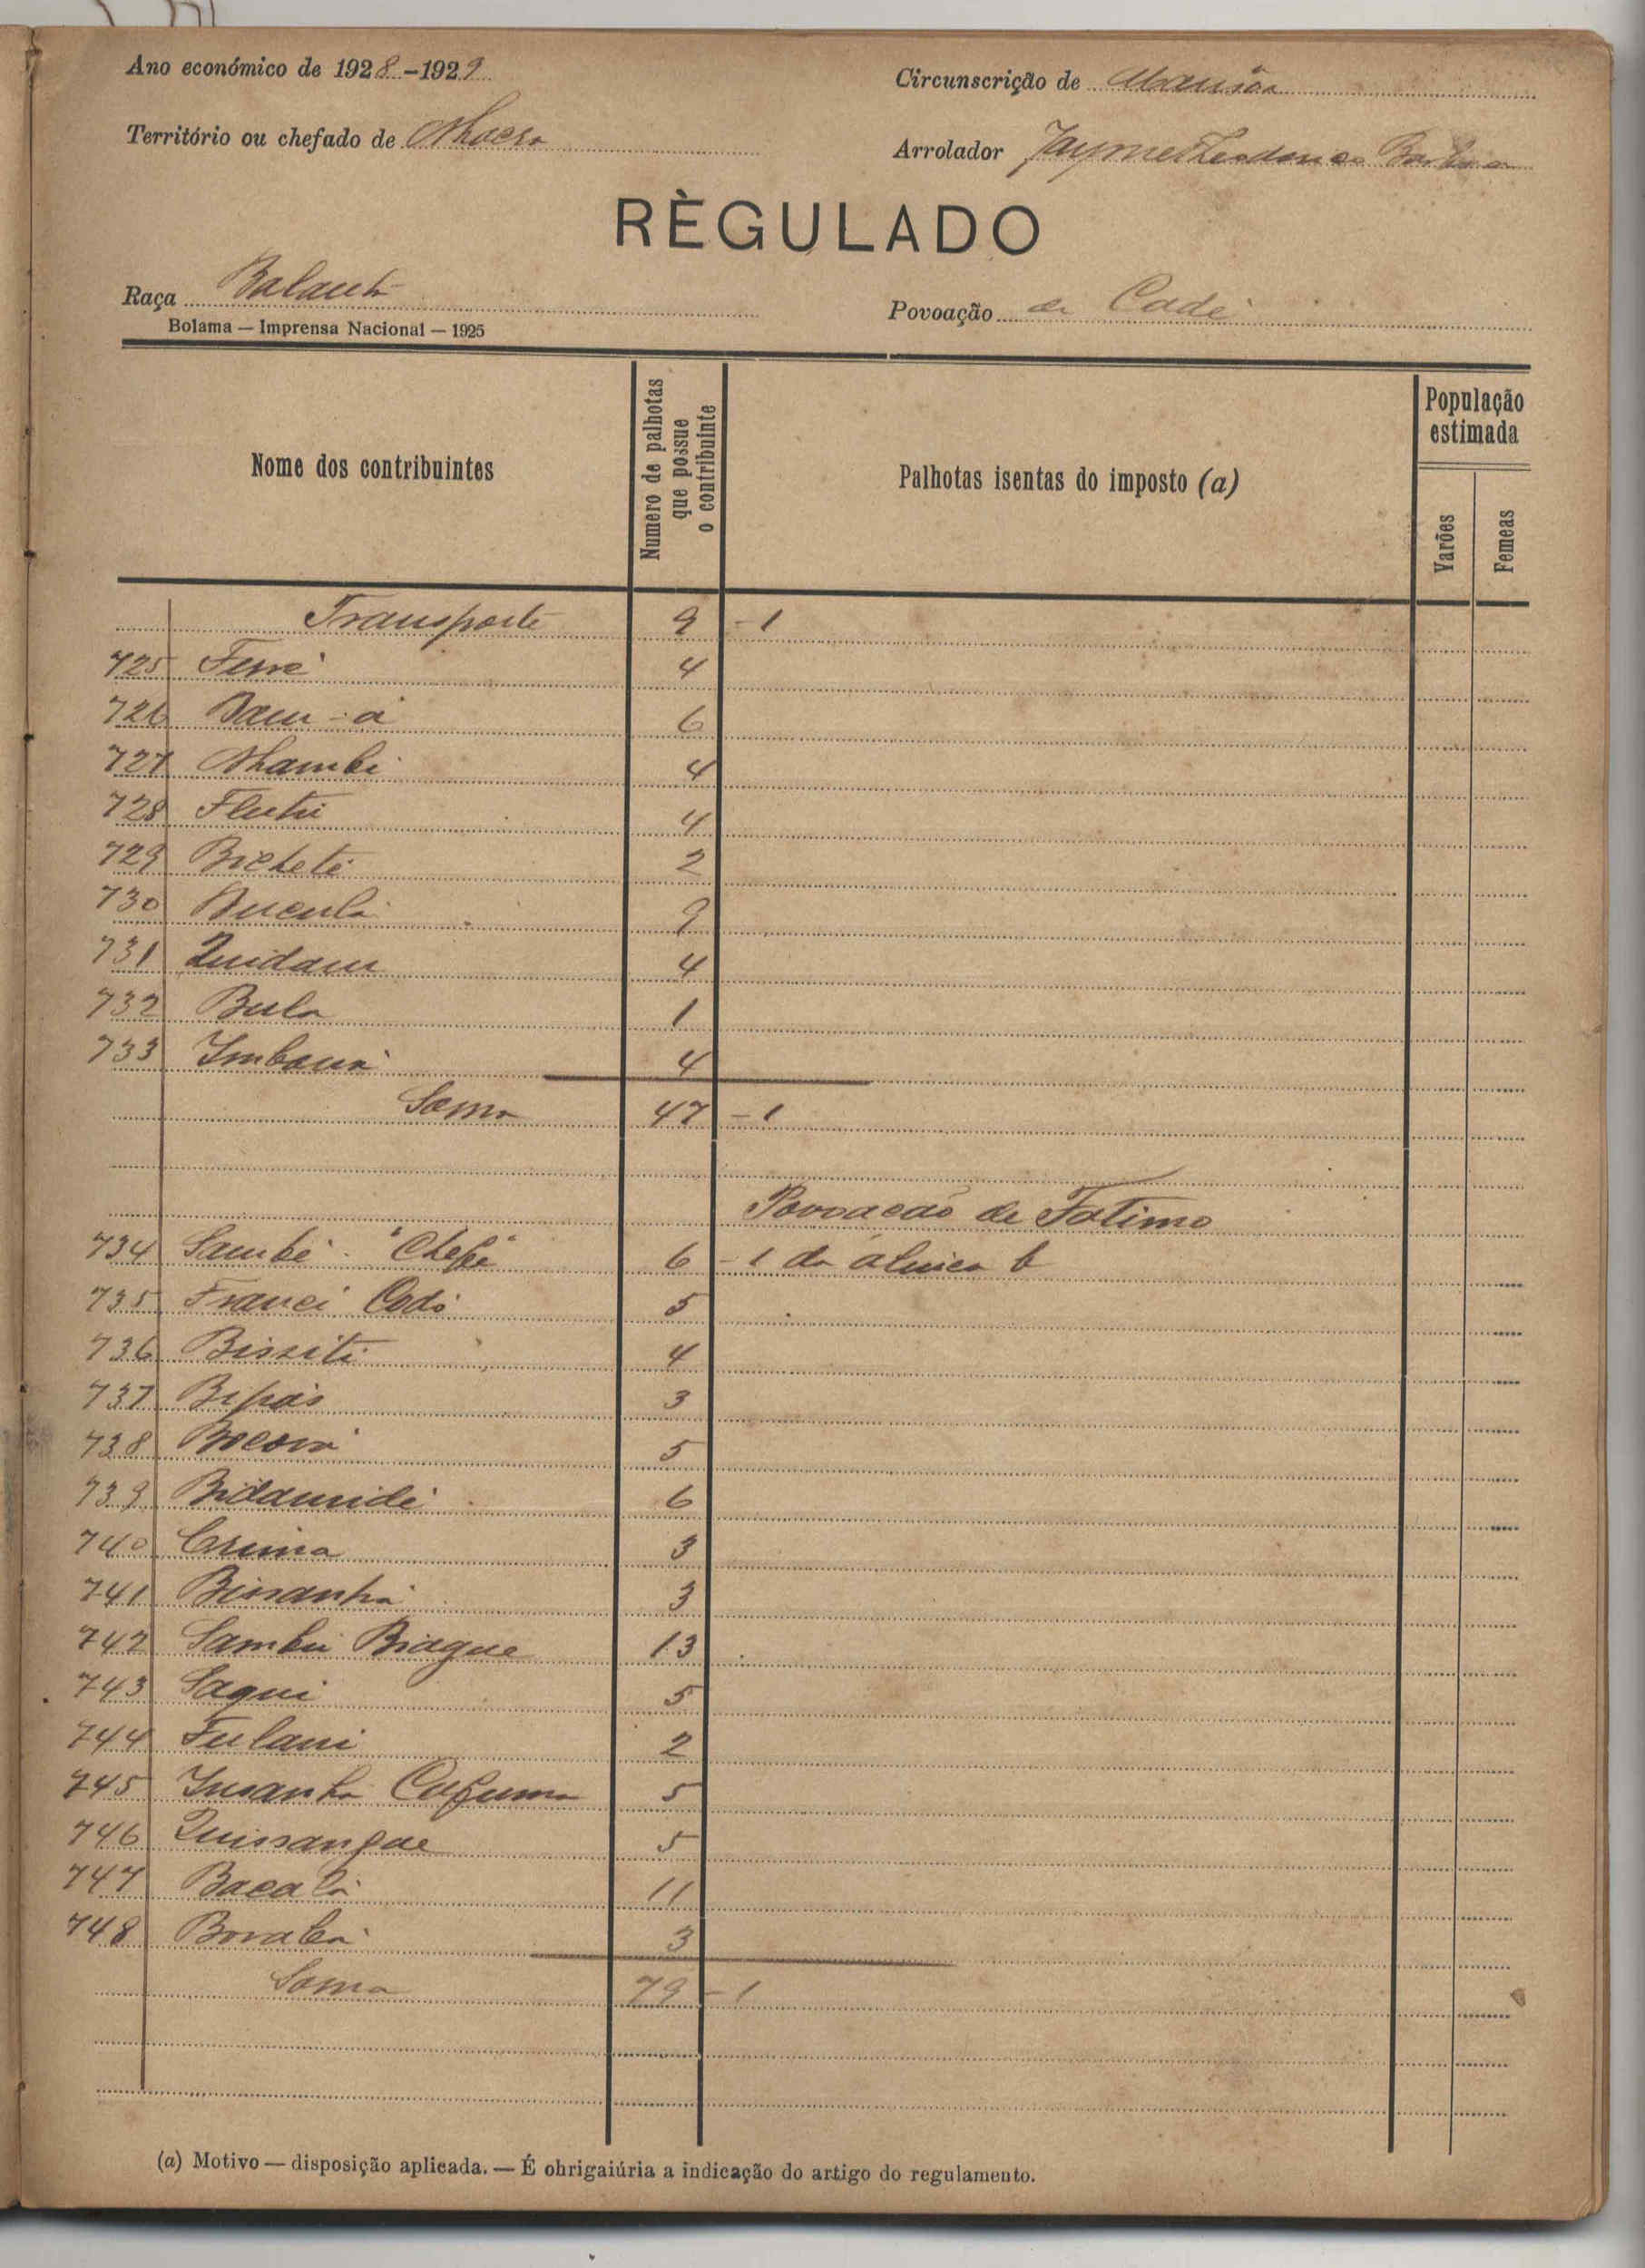 Ano económico de 1928-1929
Circunscrição de Mansôa
Território ou chefado de Nhacra
Arrolador Jayme Theodorico Barbosa
RÈGULADO
Raça Balanta
Povoação de Cadé
Bolama — Imprensa Nacional — 1925
Nome dos contribuintes
Numero de palhotas que possue o contribuinte
Palhotas isentas do imposto (a)
População estimada
Varões
Femeas
Transporte 9 - 1
725 4
726 6
727 Nhambi 4
728 4
729 Bichete 2
730 Bucula 9
731 Quidam 4
732 Bula 1
733 4
Soma 47 - 1
Povoacão de Fatimo
734 Sambé "Chefe" 6 - 1 da alinea b
735 Franci Codé 5
736 Bissiti 4
737 Bipás 3
738 5
739 Bidamidé 6
740 3
741 Bissanhá 3
742 Sambú Biague 13
743 Saqui 5
744 Fulani 2
745 5
746 Quissangue 5
747 Bacalá 11
748 3
Soma 79 - 1
(a) Motivo — disposição aplicada. — É ohrigaiúria a indicação do artigo do regulamento.